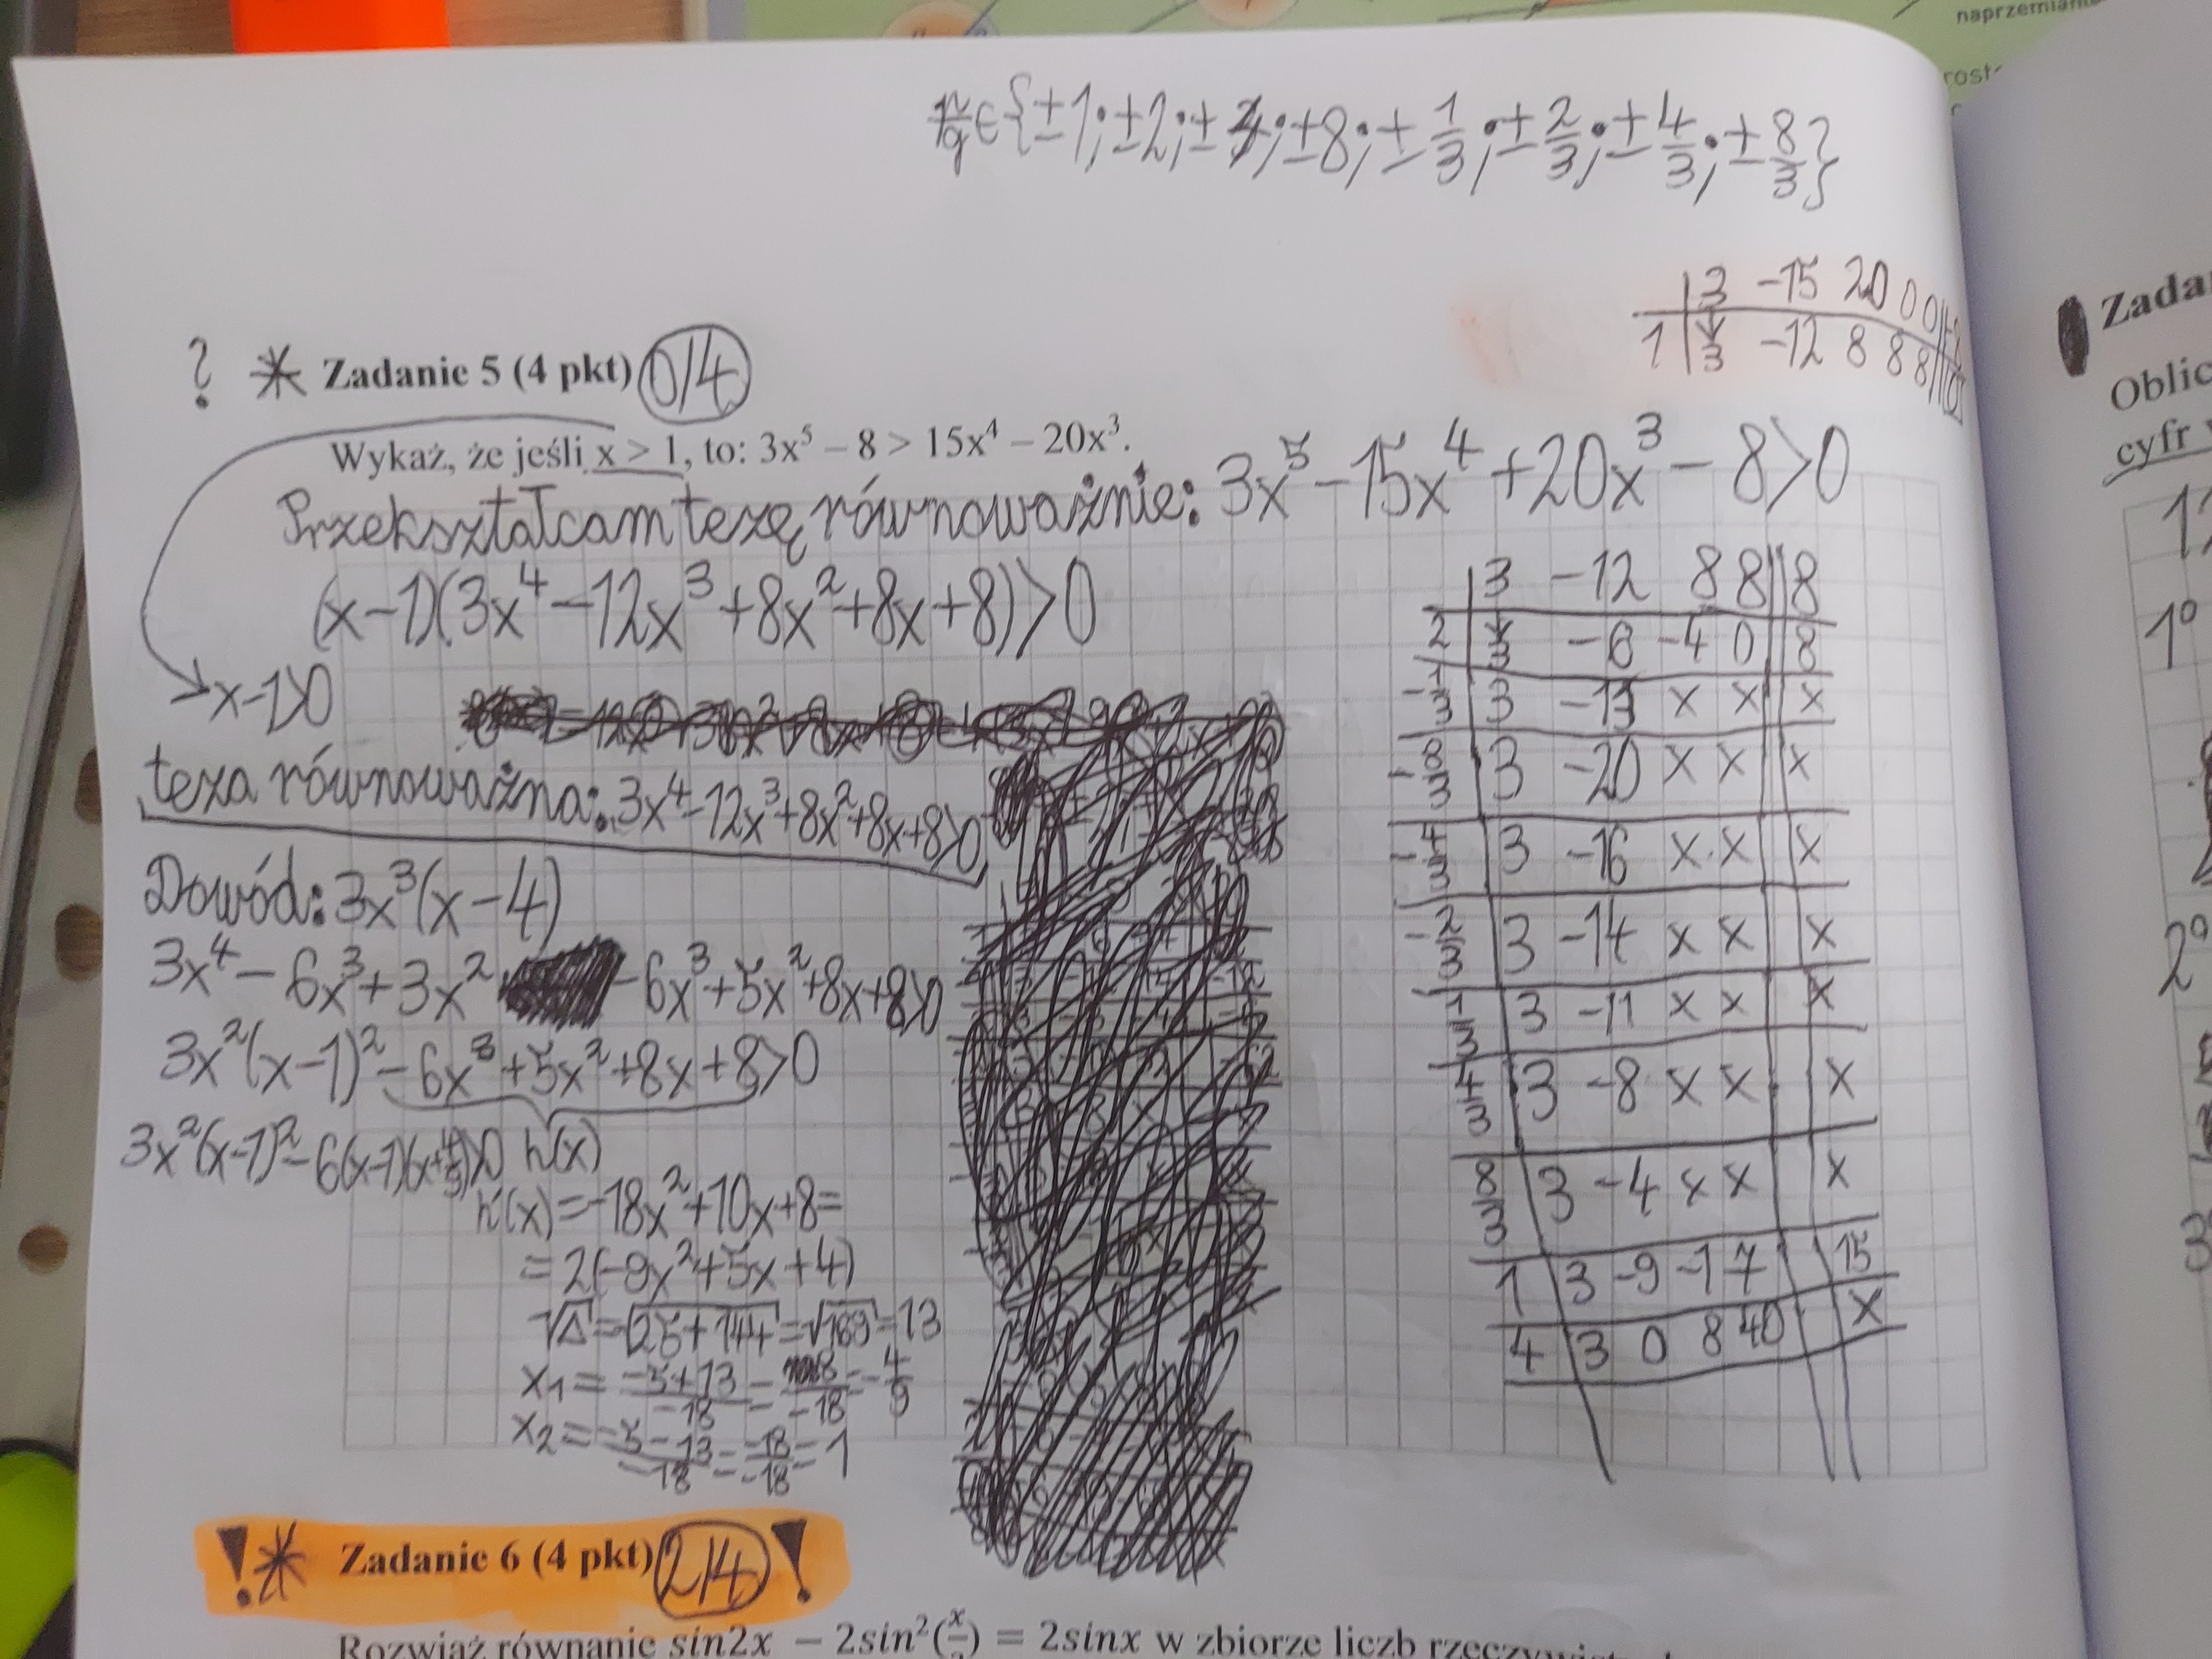 naprzemian
p/q ∈ {±1; ±2; ±4; ±8; ±1/3; ±2/3; ±4/3; ±8/3}
3 -15 20 0 0
1 3 -12 8 8 8
? * Zadanie 5 (4 pkt) 0/4
Wykaż, że jeśli x > 1, to: 3x⁵ – 8 > 15x⁴ – 20x³.
Przekształcam tezę równoważnie: 3x⁵ - 15x⁴ + 20x³ - 8 > 0
(x-1)(3x⁴ - 12x³ + 8x² + 8x + 8) > 0
x-1>0
teza równoważna: 3x⁴ - 12x³ + 8x² + 8x + 8 > 0
Dowód: 3x³(x-4)
3x⁴ - 6x³ + 3x² - 6x³ + 5x² + 8x + 8 > 0
3x²(x-1)² - 6x³ + 5x² + 8x + 8 > 0
3x²(x-1)² - 6(x-1)(x+4/9) > 0 h(x)
h'(x) = -18x² + 10x + 8 =
= 2(-9x² + 5x + 4)
√Δ = √25+144 = √169 = 13
x₁ = -5+13/-18 = 8/-18 = -4/9
x₂ = -5-13/-18 = -18/-18 = 1
3 -12 8 8 8
2 3 -6 -4 0 8
-1/3 3 -13 x x x
-8/3 3 -20 x x x
-4/3 3 -16 x x x
-2/3 3 -14 x x x
1/3 3 -11 x x x
4/3 3 -8 x x x
8/3 3 -4 x x x
1 3 -9 -1 7 15
4 3 0 8 40 x
! * Zadanie 6 (4 pkt) 2/4 !
Rozwiąż równanie sin2x – 2sin²(x/2) = 2sinx w zbiorze liczb
Zada
Oblic
cyfr
1⁰
2⁰